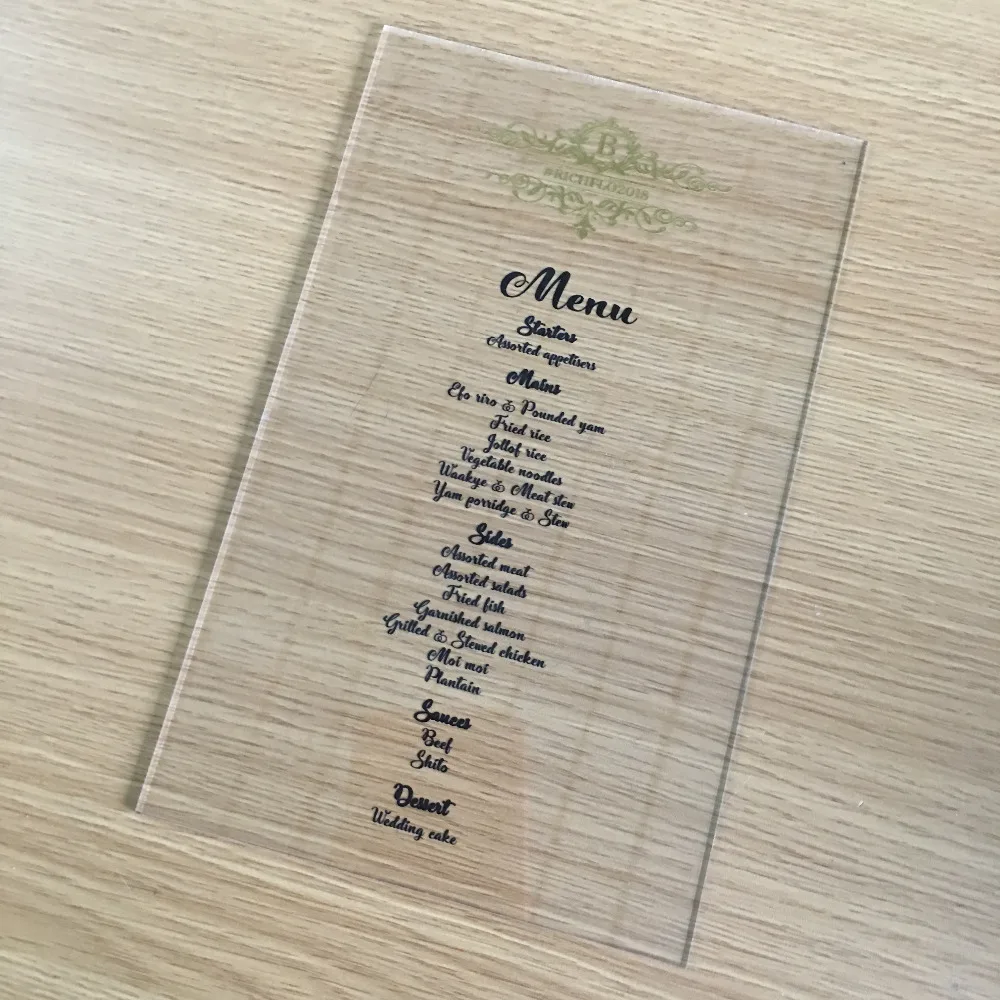 B
#RICHFLO2018
Menu
Starters
Assorted appetisers
Mains
Efo riro & Pounded yam
Fried rice
Jollof rice
Vegetable noodles
Waakye & Meat stew
Yam porridge & Stew
Sides
Assorted meat
Assorted salads
Fried fish
Garnished salmon
Grilled & Stewed chicken
Moi moi
Plantain
Sauces
Beef
Shito
Dessert
Wedding cake